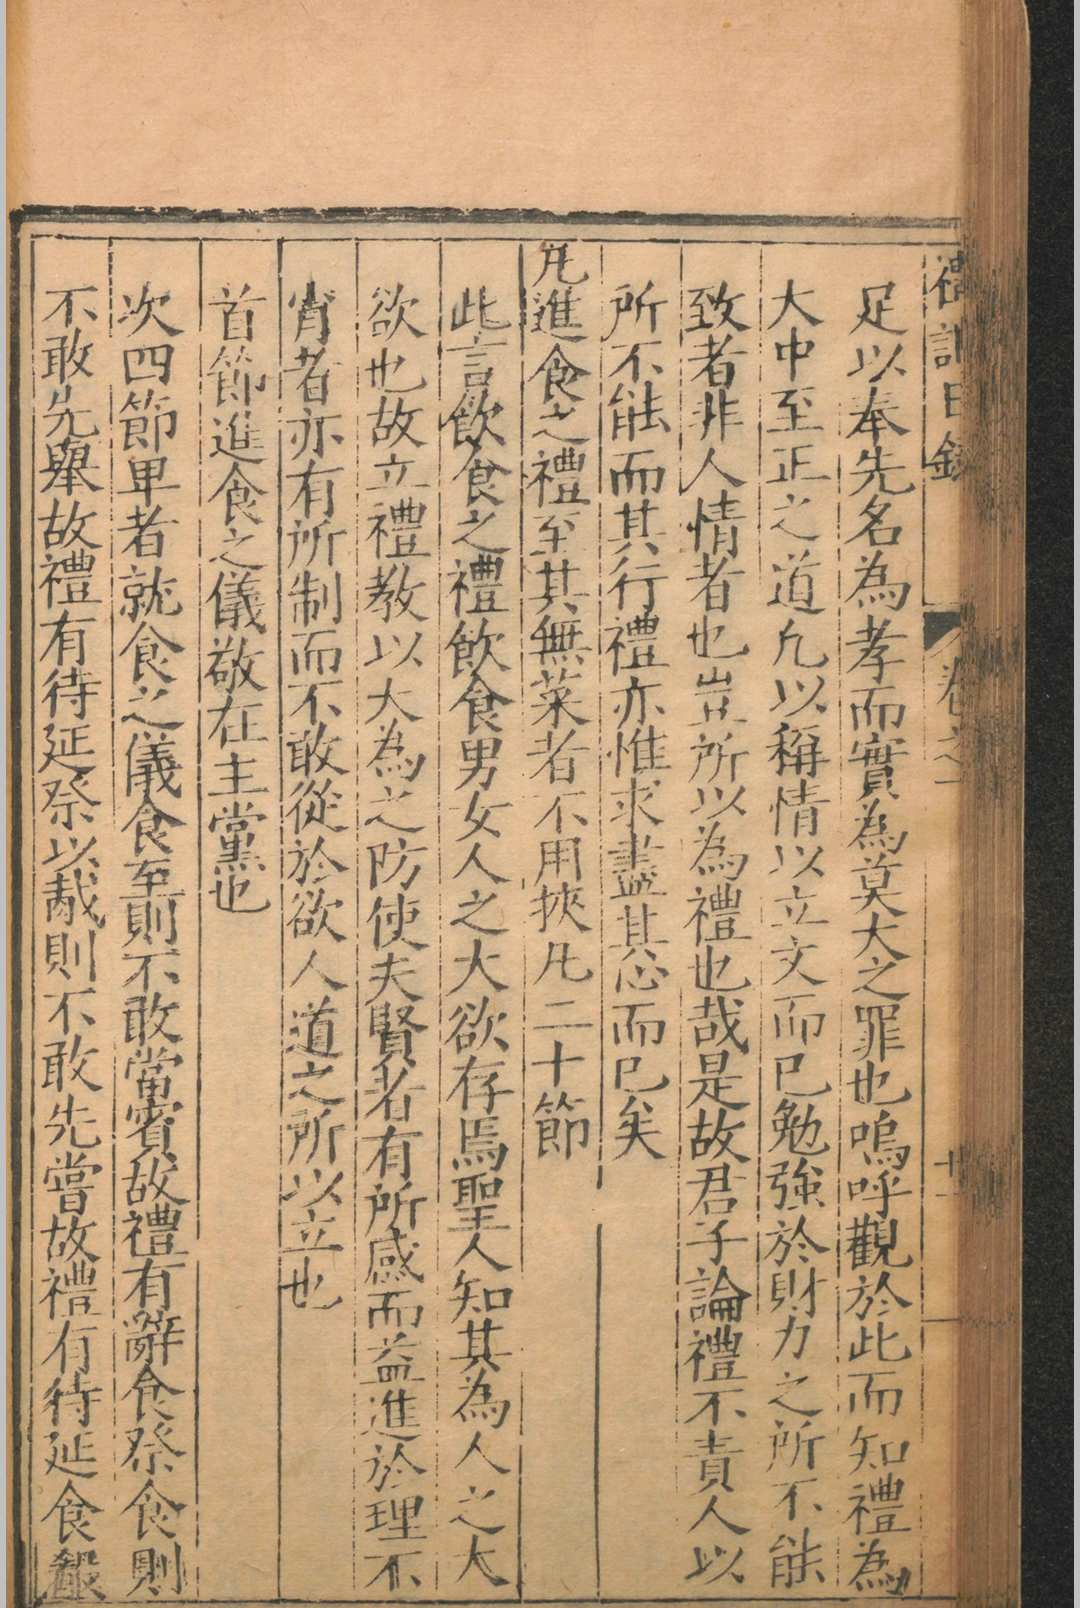 禮記日錄 卷之一 廿一
足以奉先名為孝而實為莫大之罪也嗚呼觀於此而知禮為
大中至正之道凢以稱情以立文而已勉強於財力之所不能
致者非人情者也豈所以為禮也哉是故君子論禮不責人以
所不能而其行禮亦惟求盡其心而已矣
凢進食之禮至其無菜者不用挾凢二十節
此言飲食之禮飲食男女人之大欲存焉聖人知其為人之大
欲也故立禮教以大為之防使夫賢者有所感而益進於理不
肖者亦有所制而不敢從於欲人道之所以立也
首節進食之儀敬在主黨也
次四節卑者就食之儀食至則不敢當賓故禮有辭食祭食則
不敢先舉故禮有待延祭以胾則不敢先嘗故禮有待延食殽